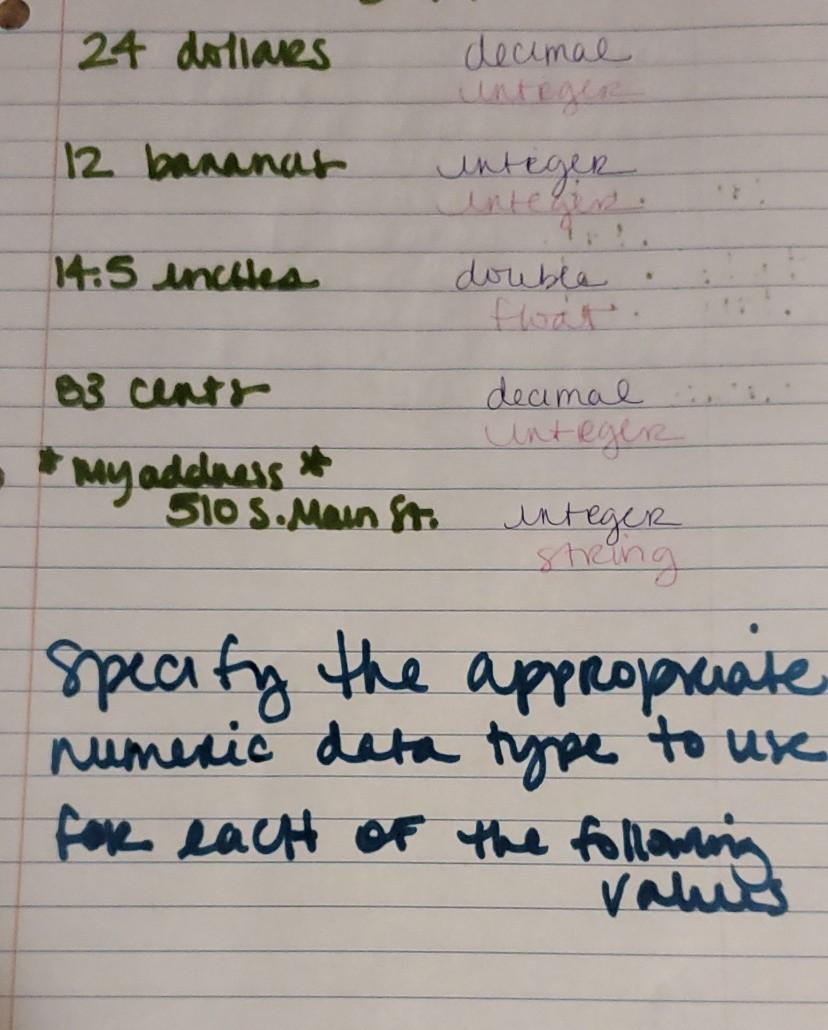 24 dollars decimal
integer
12 bananas integer
integer
14.5 inches double
float
83 cents decimal
integer
* My address *
510 S. Main St. integer
string
Specify the appropriate
numeric data type to use
for each of the following
values